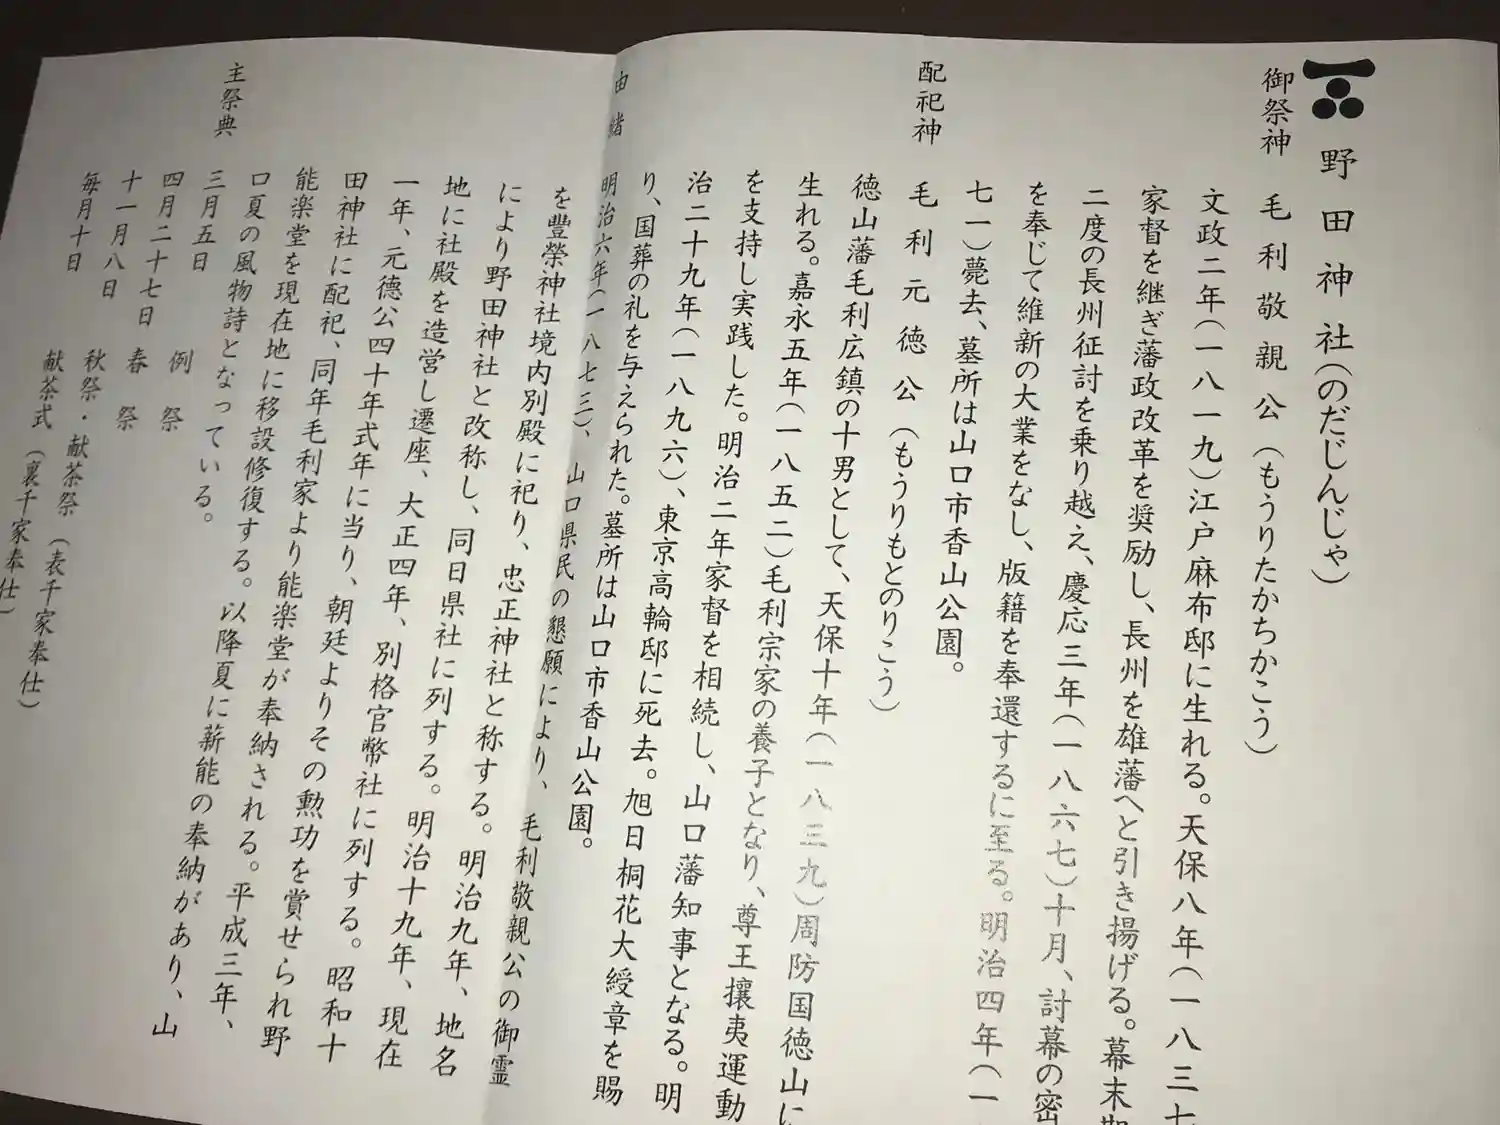 野田神社(のだじんじゃ)
御祭神 毛利敬親公(もうりたかちかこう)
文政二年(一八一九)江戸麻布邸に生れる。天保八年(一八三七
家督を継ぎ藩政改革を奨励し、長州を雄藩へと引き揚げる。幕末期
二度の長州征討を乗り越え、慶応三年(一八六七)十月、討幕の密
を奉じて維新の大業をなし、版籍を奉還するに至る。明治四年(一
七一)薨去、墓所は山口市香山公園。
配祀神 毛利元徳公(もうりもとのりこう)
徳山藩毛利広鎮の十男として、天保十年(一八三九)周防国徳山に
生れる。嘉永五年(一八五二)毛利宗家の養子となり、尊王攘夷運動
を支持し実践した。明治二年家督を相続し、山口藩知事となる。明
治二十九年(一八九六)、東京高輪邸に死去。旭日桐花大綬章を賜
り、国葬の礼を与えられた。墓所は山口市香山公園。
由緒 明治六年(一八七三)、山口県民の懇願により、毛利敬親公の御霊
を豊榮神社境内別殿に祀り、忠正神社と称する。明治九年、地名
により野田神社と改称し、同日県社に列する。明治十九年、現在
地に社殿を造営し遷座、大正四年、別格官幣社に列する。昭和十
一年、元徳公四十年式年に当り、朝廷よりその勲功を賞せられ野
田神社に配祀、同年毛利家より能楽堂が奉納される。平成三年、
能楽堂を現在地に移設修復する。以降夏に薪能の奉納があり、山
口夏の風物詩となっている。
主祭典 三月五日 例祭
四月二十七日 春祭
十一月八日 秋祭・献茶祭(表千家奉仕)
毎月十日 献茶式(裏千家奉仕)